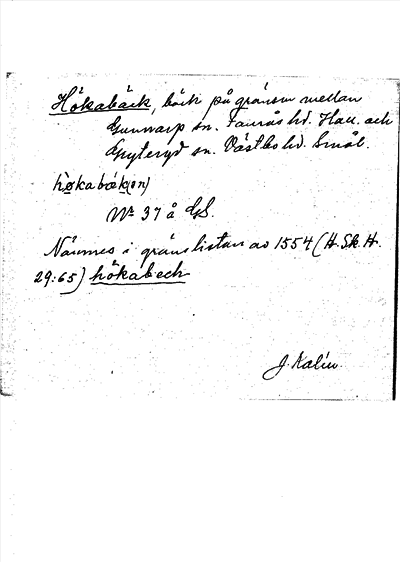 Hökabäck, bäck på gränsen mellan
Gunnarp sn. Faurås hd. Hall. och
Gryteryd sn. Västbo hd. Smål.
hökabäk(ən)
No 37 å GS.
Nämnes i gränslistan av 1554 (H. Sk. H.
29:65) hökabech
J. Kalén.